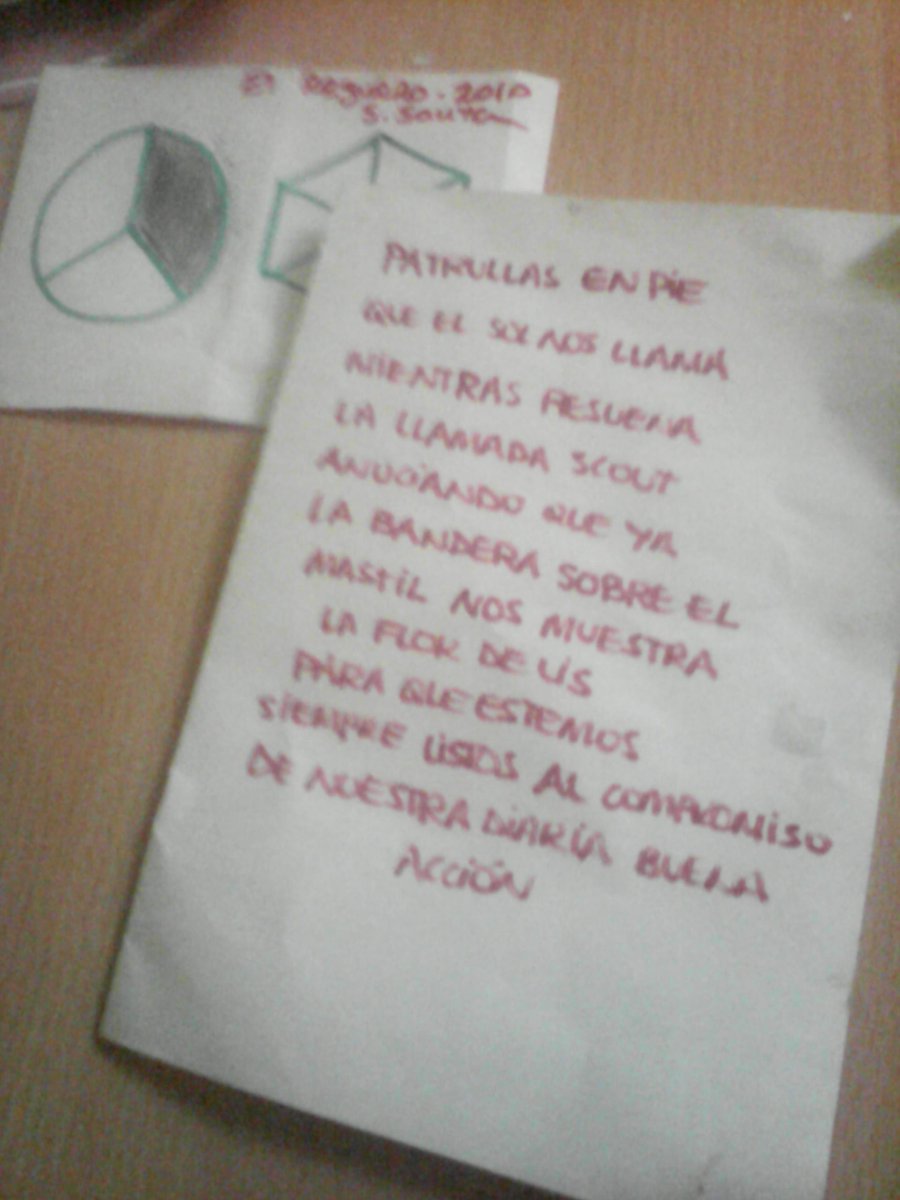 El Reguero - 2010
S.
PATRULLAS EN PIE
QUE EL SOL NOS LLAMA
MIENTRAS RESUENA
LA LLAMADA SCOUT
ANUCIANDO QUE YA
LA BANDERA SOBRE EL
MASTIL NOS MUESTRA
LA FLOR DE LIS
PARA QUE ESTEMOS
SIEMPRE LISTOS AL COMPROMISO
DE NUESTRA DIARIA BUENA
ACCIÓN